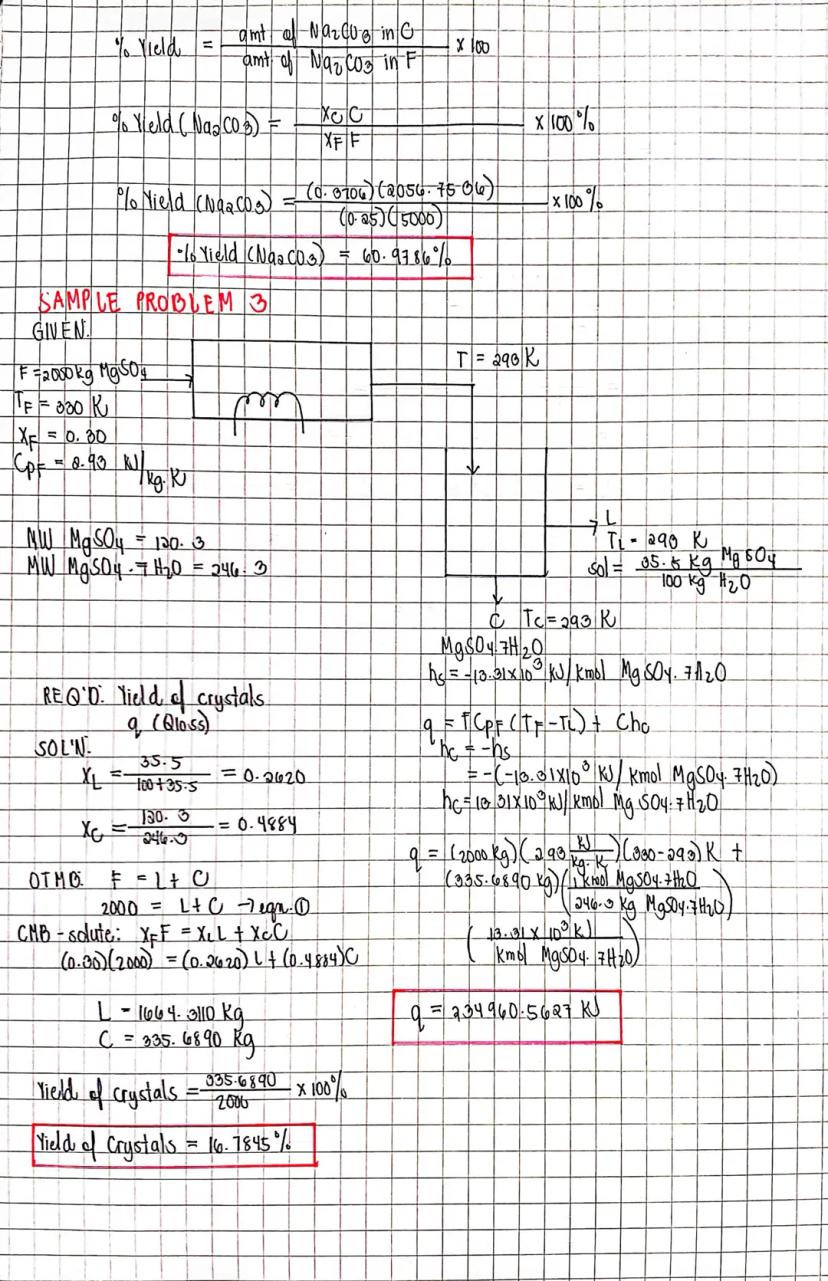 % Yield = amt of Na2CO3 in C / amt of Na2CO3 in F x 100
% Yield (Na2CO3) = XC C / XF F x 100%
% Yield (Na2CO3) = (0.3706)(2056.7506) / (0.25)(5000) x 100%
% Yield (Na2CO3) = 60.9786%
SAMPLE PROBLEM 3
GIVEN:
F = 2000 kg MgSO4
TF = 330 K
XF = 0.30
CPF = 2.93 kJ/kg·K
T = 293 K
MW MgSO4 = 120.3
MW MgSO4·7H2O = 246.3
L
TL = 293 K
sol = 35.5 kg MgSO4 / 100 kg H2O
C TC = 293 K
MgSO4·7H2O
hs = -13.31x10³ kJ/kmol MgSO4·7H2O
REQ'D: Yield of crystals
q (Qloss)
SOL'N:
XL = 35.5 / 100+35.5 = 0.2620
XC = 120.3 / 246.3 = 0.4884
OTMB: F = L + C
2000 = L + C → eqn. ①
CMB - solute: XF F = XL L + XC C
(0.30)(2000) = (0.2620) L + (0.4884) C
L = 1664.3110 kg
C = 335.6890 kg
Yield of crystals = 335.6890 / 2000 x 100%
Yield of Crystals = 16.7845%
q = FCPF (TF - TL) + ChC
hC = -hs
= -(-13.31x10³ kJ/kmol MgSO4·7H2O)
hC = 13.31x10³ kJ/kmol MgSO4·7H2O
q = (2000 kg)(2.93 kJ/kg·K)(330-293) K +
(335.6890 kg)(1 kmol MgSO4·7H2O / 246.3 kg MgSO4·7H2O)
(13.31 x 10³ kJ / kmol MgSO4·7H2O)
q = 234960.5627 kJ